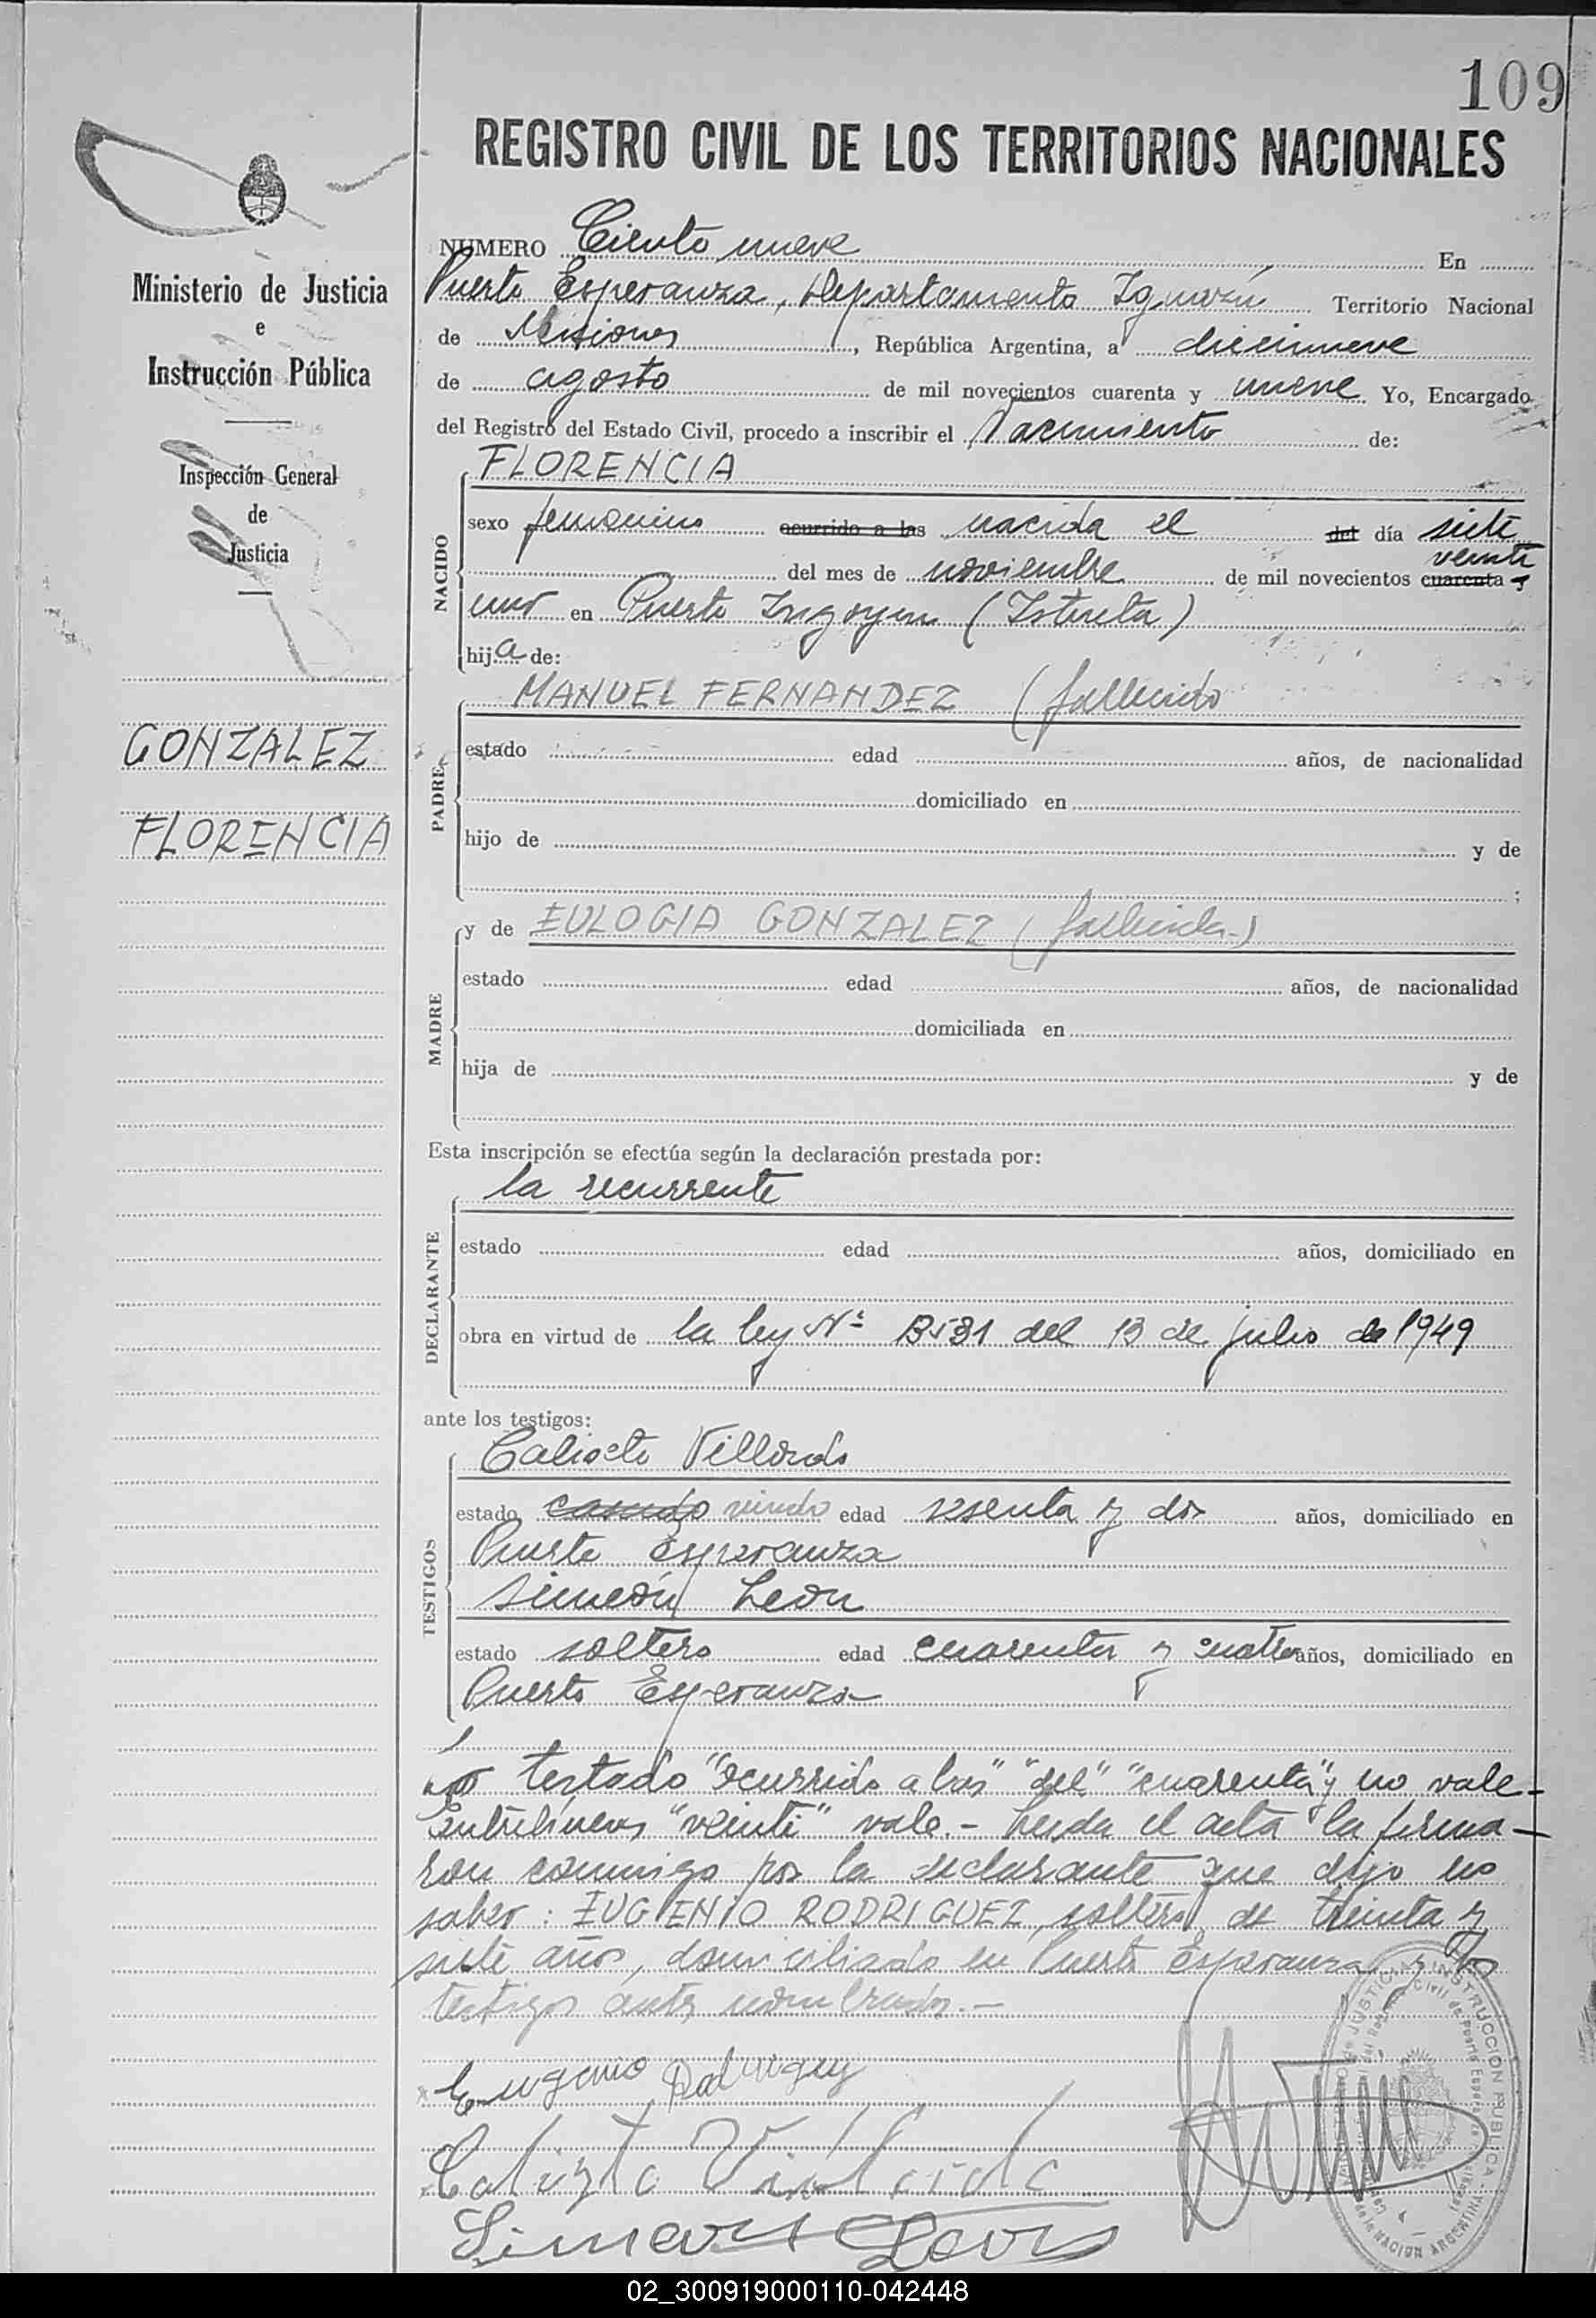 109
REGISTRO CIVIL DE LOS TERRITORIOS NACIONALES
Ministerio de Justicia
e
Instrucción Pública
Inspección General
de
Justicia
GONZALEZ
FLORENCIA
NUMERO Ciento nueve En
Puerto Esperanza, Departamento Iguazú Territorio Nacional
de Misiones, República Argentina, a diecinueve
de agosto de mil novecientos cuarenta y nueve Yo, Encargado
del Registro del Estado Civil, procedo a inscribir el Nacimiento de:
NACIDO
FLORENCIA
sexo femenino ocurrido a las nacida el del día siete
veinte
del mes de noviembre de mil novecientos cuarenta y
uno en Puerto Irigoyen (
hija de:
PADRE
MANUEL FERNANDEZ (fallecido
estado edad años, de nacionalidad
domiciliado en
hijo de y de
;
MADRE
y de EULOGIA GONZALEZ (fallecida-)
estado edad años, de nacionalidad
domiciliada en
hija de y de
Esta inscripción se efectúa según la declaración prestada por:
DECLARANTE
la recurrente
estado edad años, domiciliado en
obra en virtud de la ley Nº 13581 del 13 de julio de 1949
ante los testigos:
TESTIGOS
Calisto
estado casado viudo edad sesenta y dos años, domiciliado en
Puerto Esperanza
Simeón Leon
estado soltero edad cuarenta y cuatro años, domiciliado en
Puerto Esperanza
testado "ocurrido a las" "del" "cuarenta" y no vale-
Entrelíneas "veinte" vale.- Leida el acta la firma-
ron conmigo por la declarante que dijo no
saber: EUGENIO RODRIGUEZ, soltero, de treinta y
siete años, domiciliado en Puerto Esperanza y los
testigos antes nombrados.-
Eugenio
Simeon Leon
02_300919000110-042448